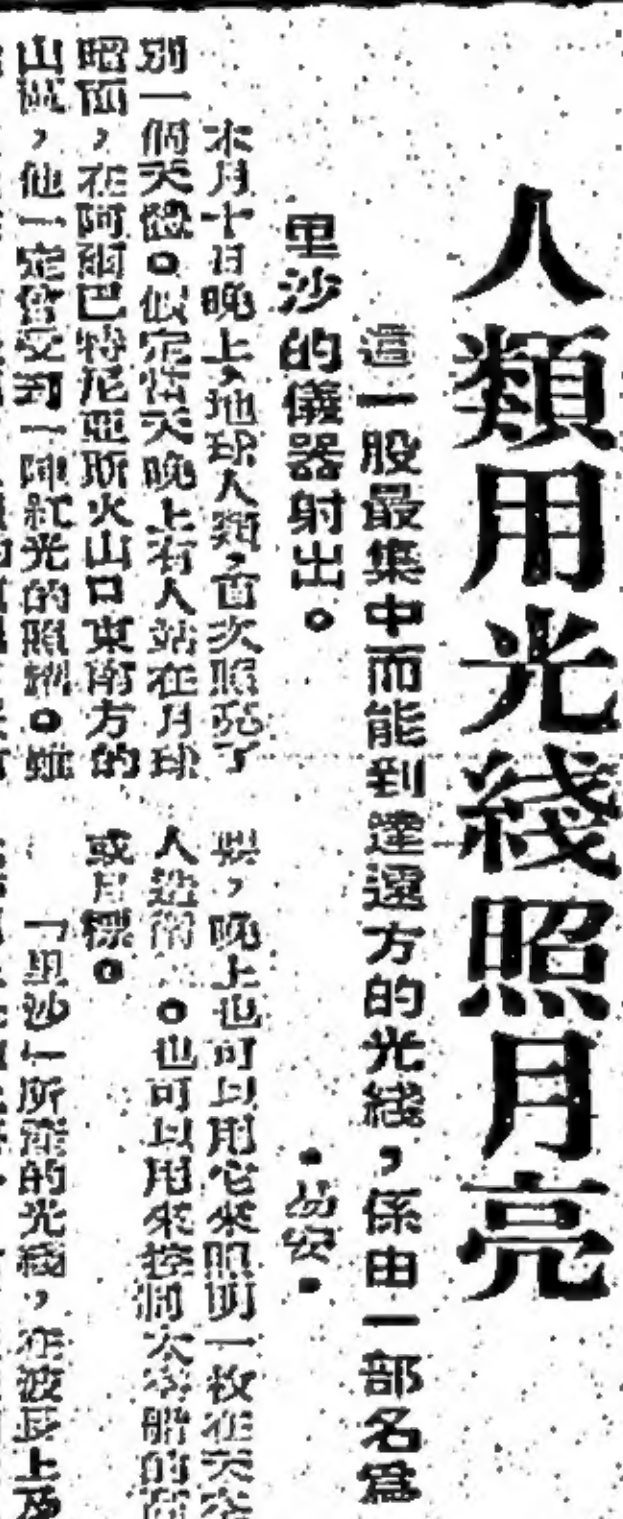 人類用光綫照月亮
這一股最集中而能到達遠方的光綫，係由一部名爲
里沙的儀器射出。
・易安・
本月十日晚上，地球人類，首次照亮了
別一個天體。假定當天晚上有人站在月球
，在阿爾巴特尼亞斯火山口東南方的
山區，他一定會受到一陣紅光的照耀。雖
，晚上也可以用它來照明一枚在太空
人造衛。也可以用來控制太空船的
或目標。
「里沙」所產的光綫，在波長上及